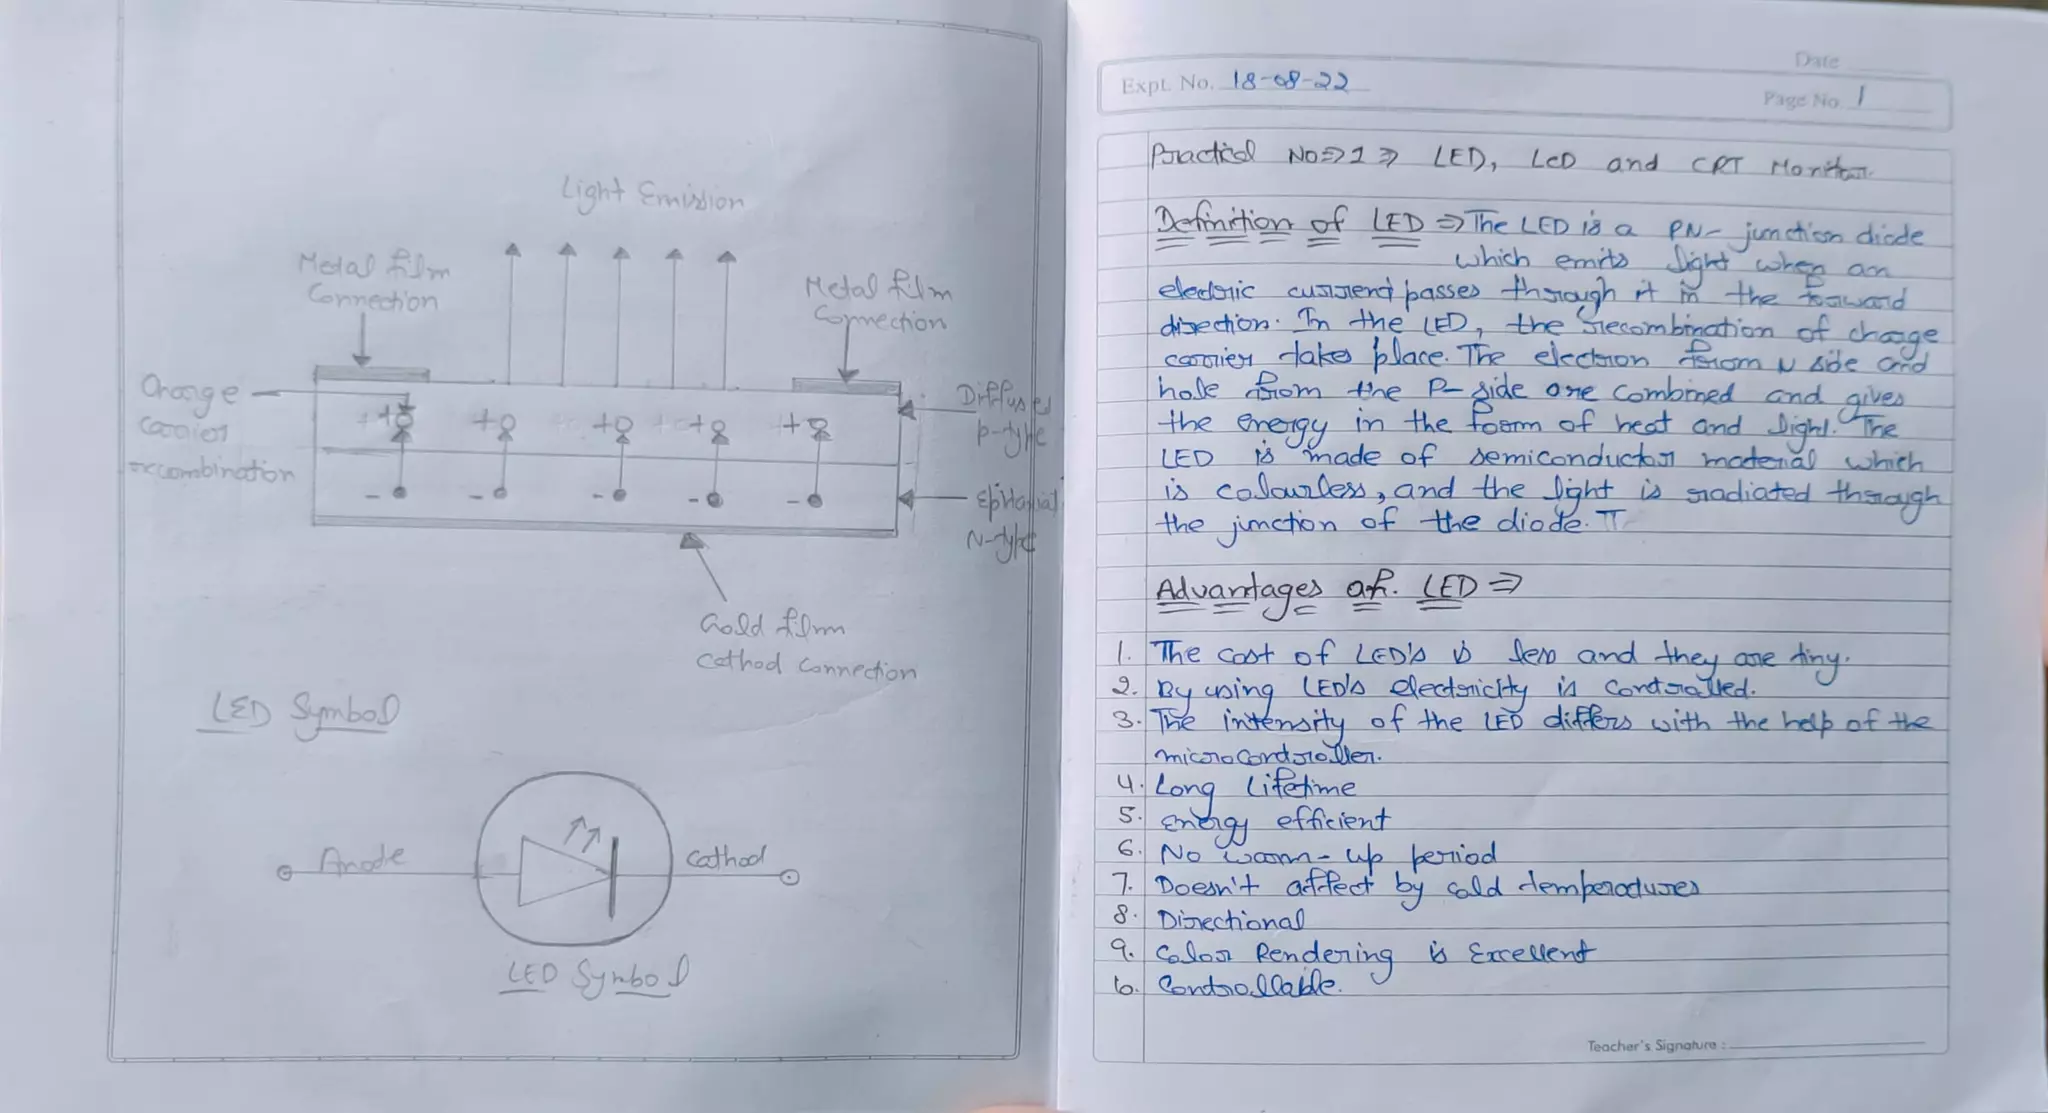 Light Emission
Metal film
Connection
Metal film
Connection
Charge
Carrier
recombination
+ + + + +
- - - - -
Diffused
p-type
Epitaxial
N-type
Gold film
Cathod Connection
LED Symbol
Anode
Cathod
LED Symbol
Date
Expt. No. 18-08-22
Page No 1
Practical No⇒1⇒ LED, LCD and CRT Monitor.
Definition of LED ⇒ The LED is a PN- junction diode
which emits light when an
electric current passes through it in the forward
direction. In the LED, the recombination of charge
carrier takes place. The electron from N side and
hole from the P- side are combined and gives
the energy in the form of heat and light. The
LED is made of semiconductor material which
is colourless, and the light is radiated through
the junction of the diode.
Advantages of. LED ⇒
1. The cost of LED's is less and they are tiny.
2. By using LED's electricity is controlled.
3. The intensity of the LED differs with the help of the
microcontroller.
4. Long Lifetime
5. Energy efficient
6. No warm-up period
7. Doesn't affect by cold temperatures
8. Directional
9. Color Rendering is Excellent
10. Controllable.
Teacher's Signature :